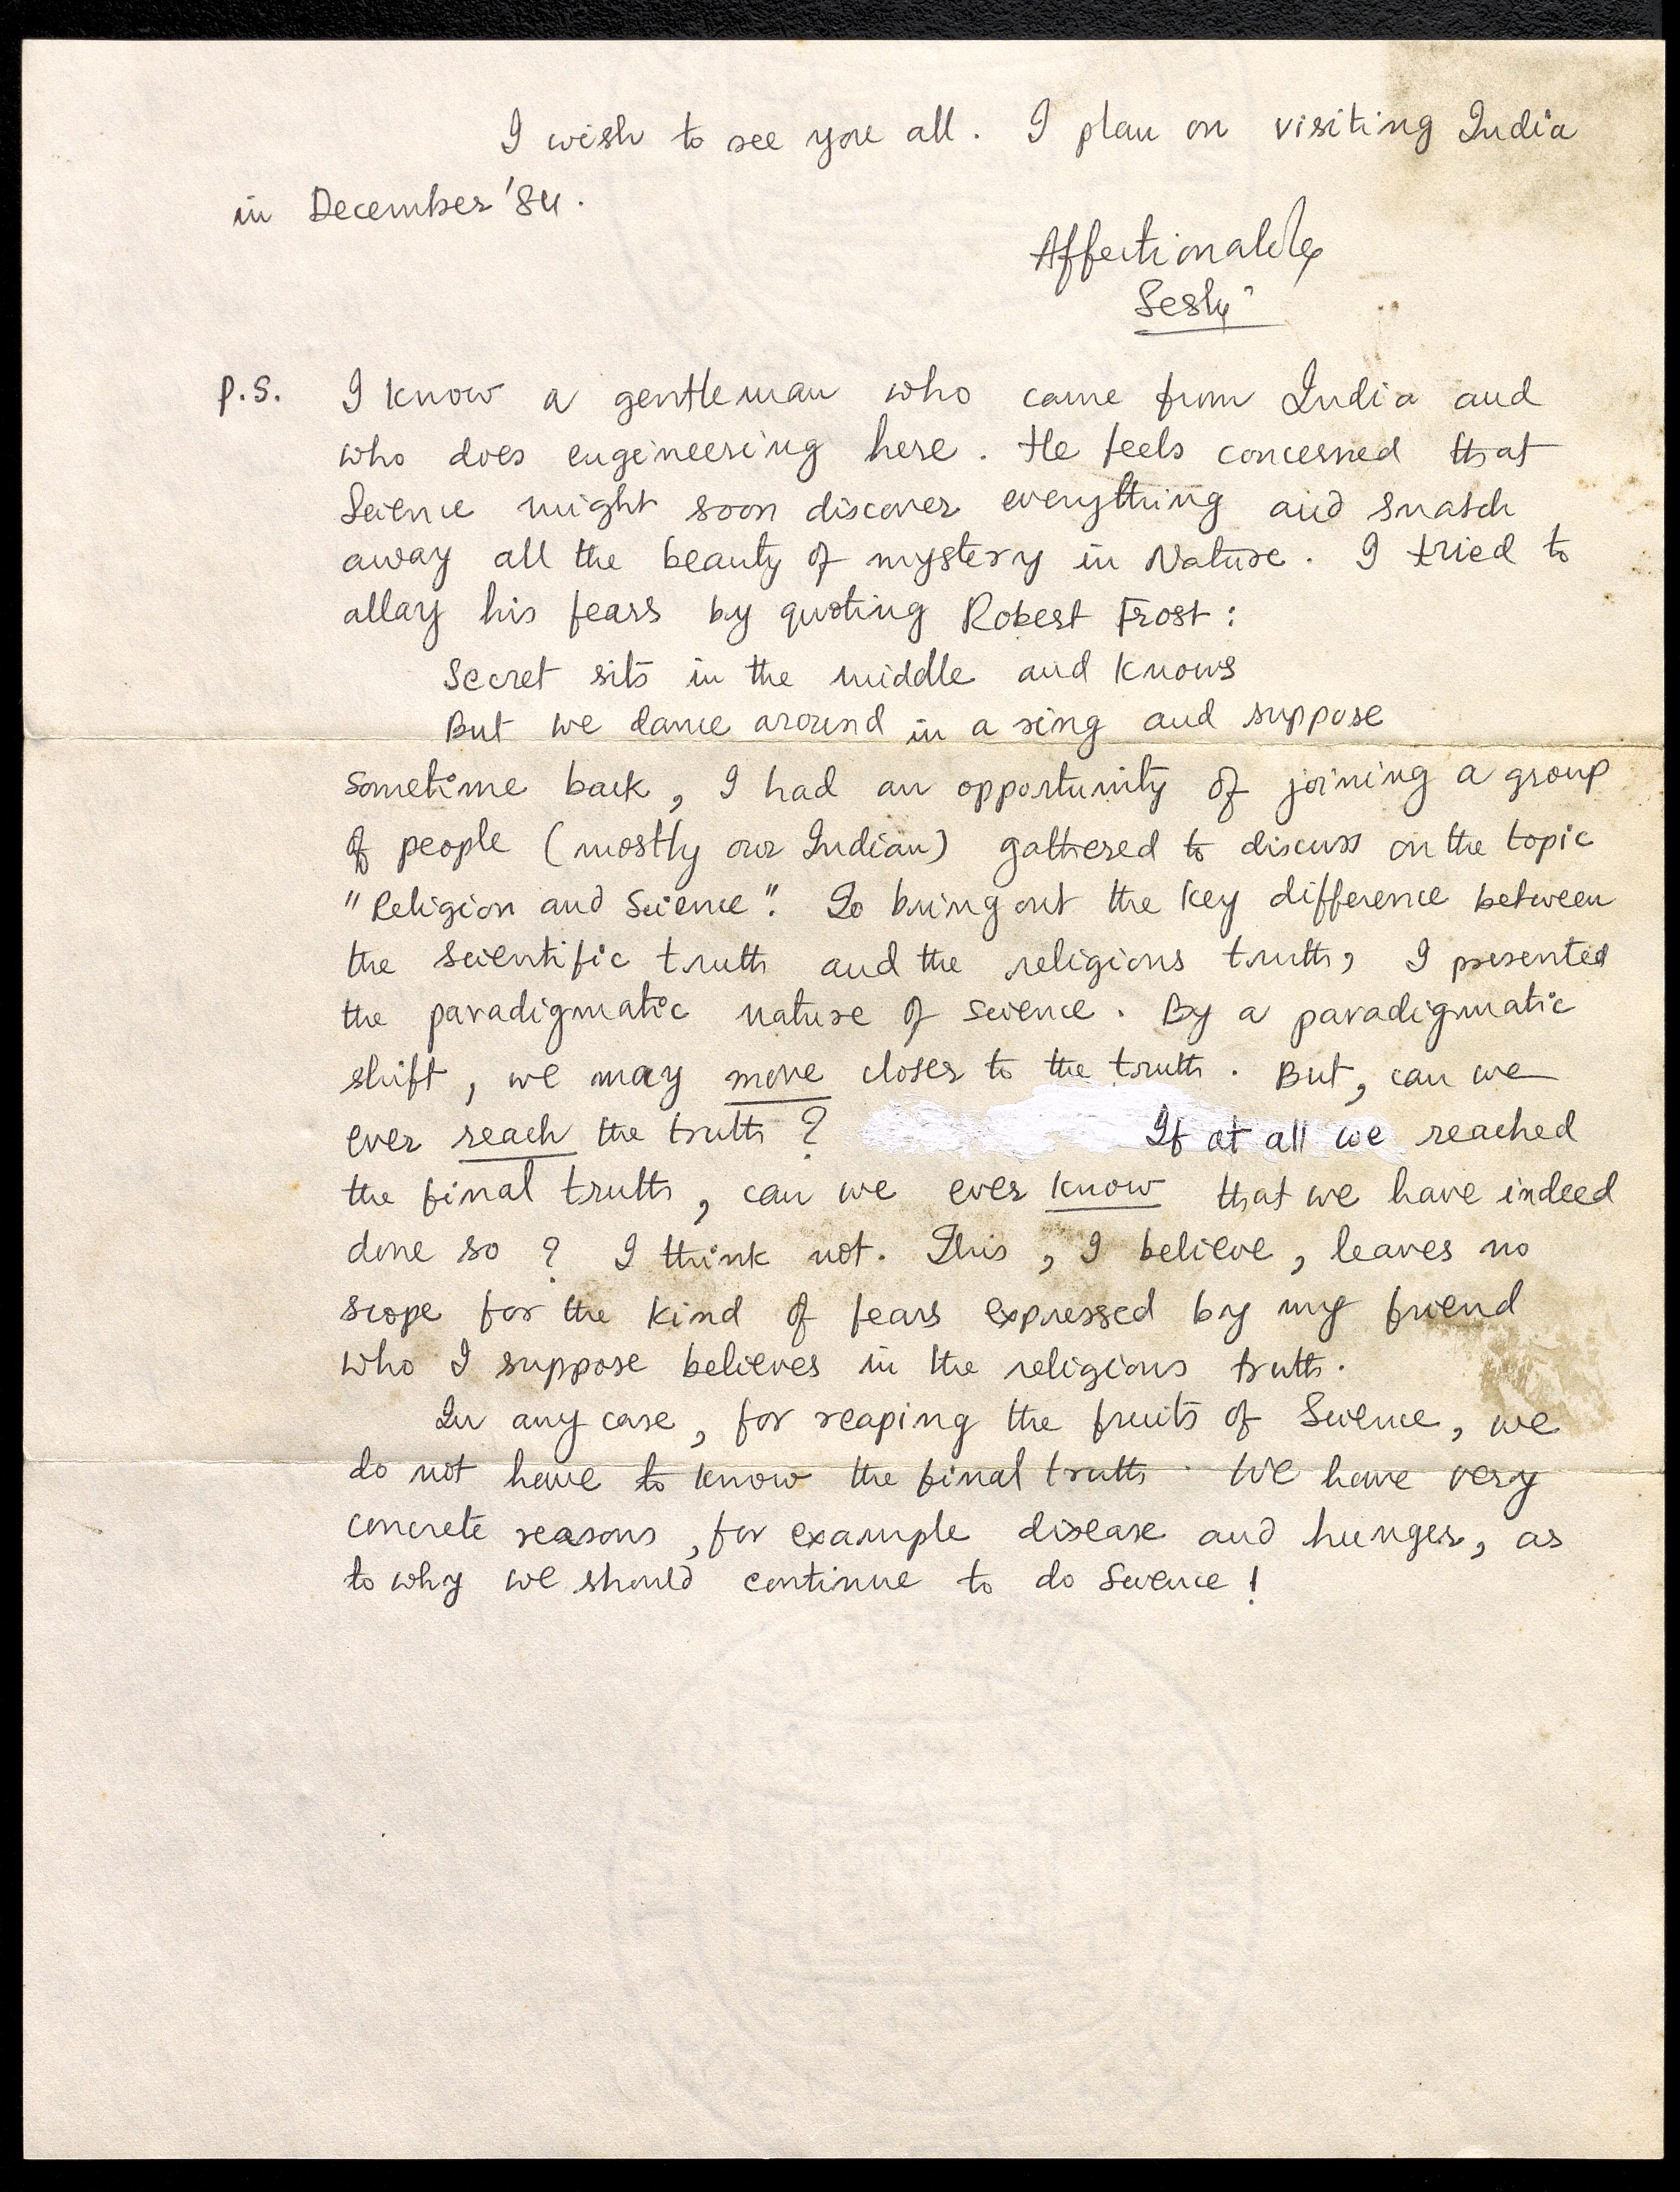 I wish to see you all. I plan on visiting India
in December '84.
Affectionately
Seshu
P.S. I know a gentleman who came from India and
who does engineering here. He feels concerned that
Science might soon discover everything and snatch
away all the beauty of mystery in Nature. I tried to
allay his fears by quoting Robert Frost:
Secret sits in the middle and knows
But we dance around in a ring and suppose
Sometime back, I had an opportunity of joining a group
of people (mostly our Indian) gathered to discuss on the topic
"Religion and Science". To bring out the key difference between
the scientific truth and the religious truth, I presented
the paradigmatic nature of science. By a paradigmatic
shift, we may move closer to the truth. But, can we
ever reach the truth? If at all we reached
the final truth, can we ever know that we have indeed
done so? I think not. This, I believe, leaves no
scope for the kind of fears expressed by my friend
who I suppose believes in the religious truth.
In any case, for reaping the fruits of Science, we
do not have to know the final truth. We have very
concrete reasons, for example disease and hunger, as
to why we should continue to do Science!